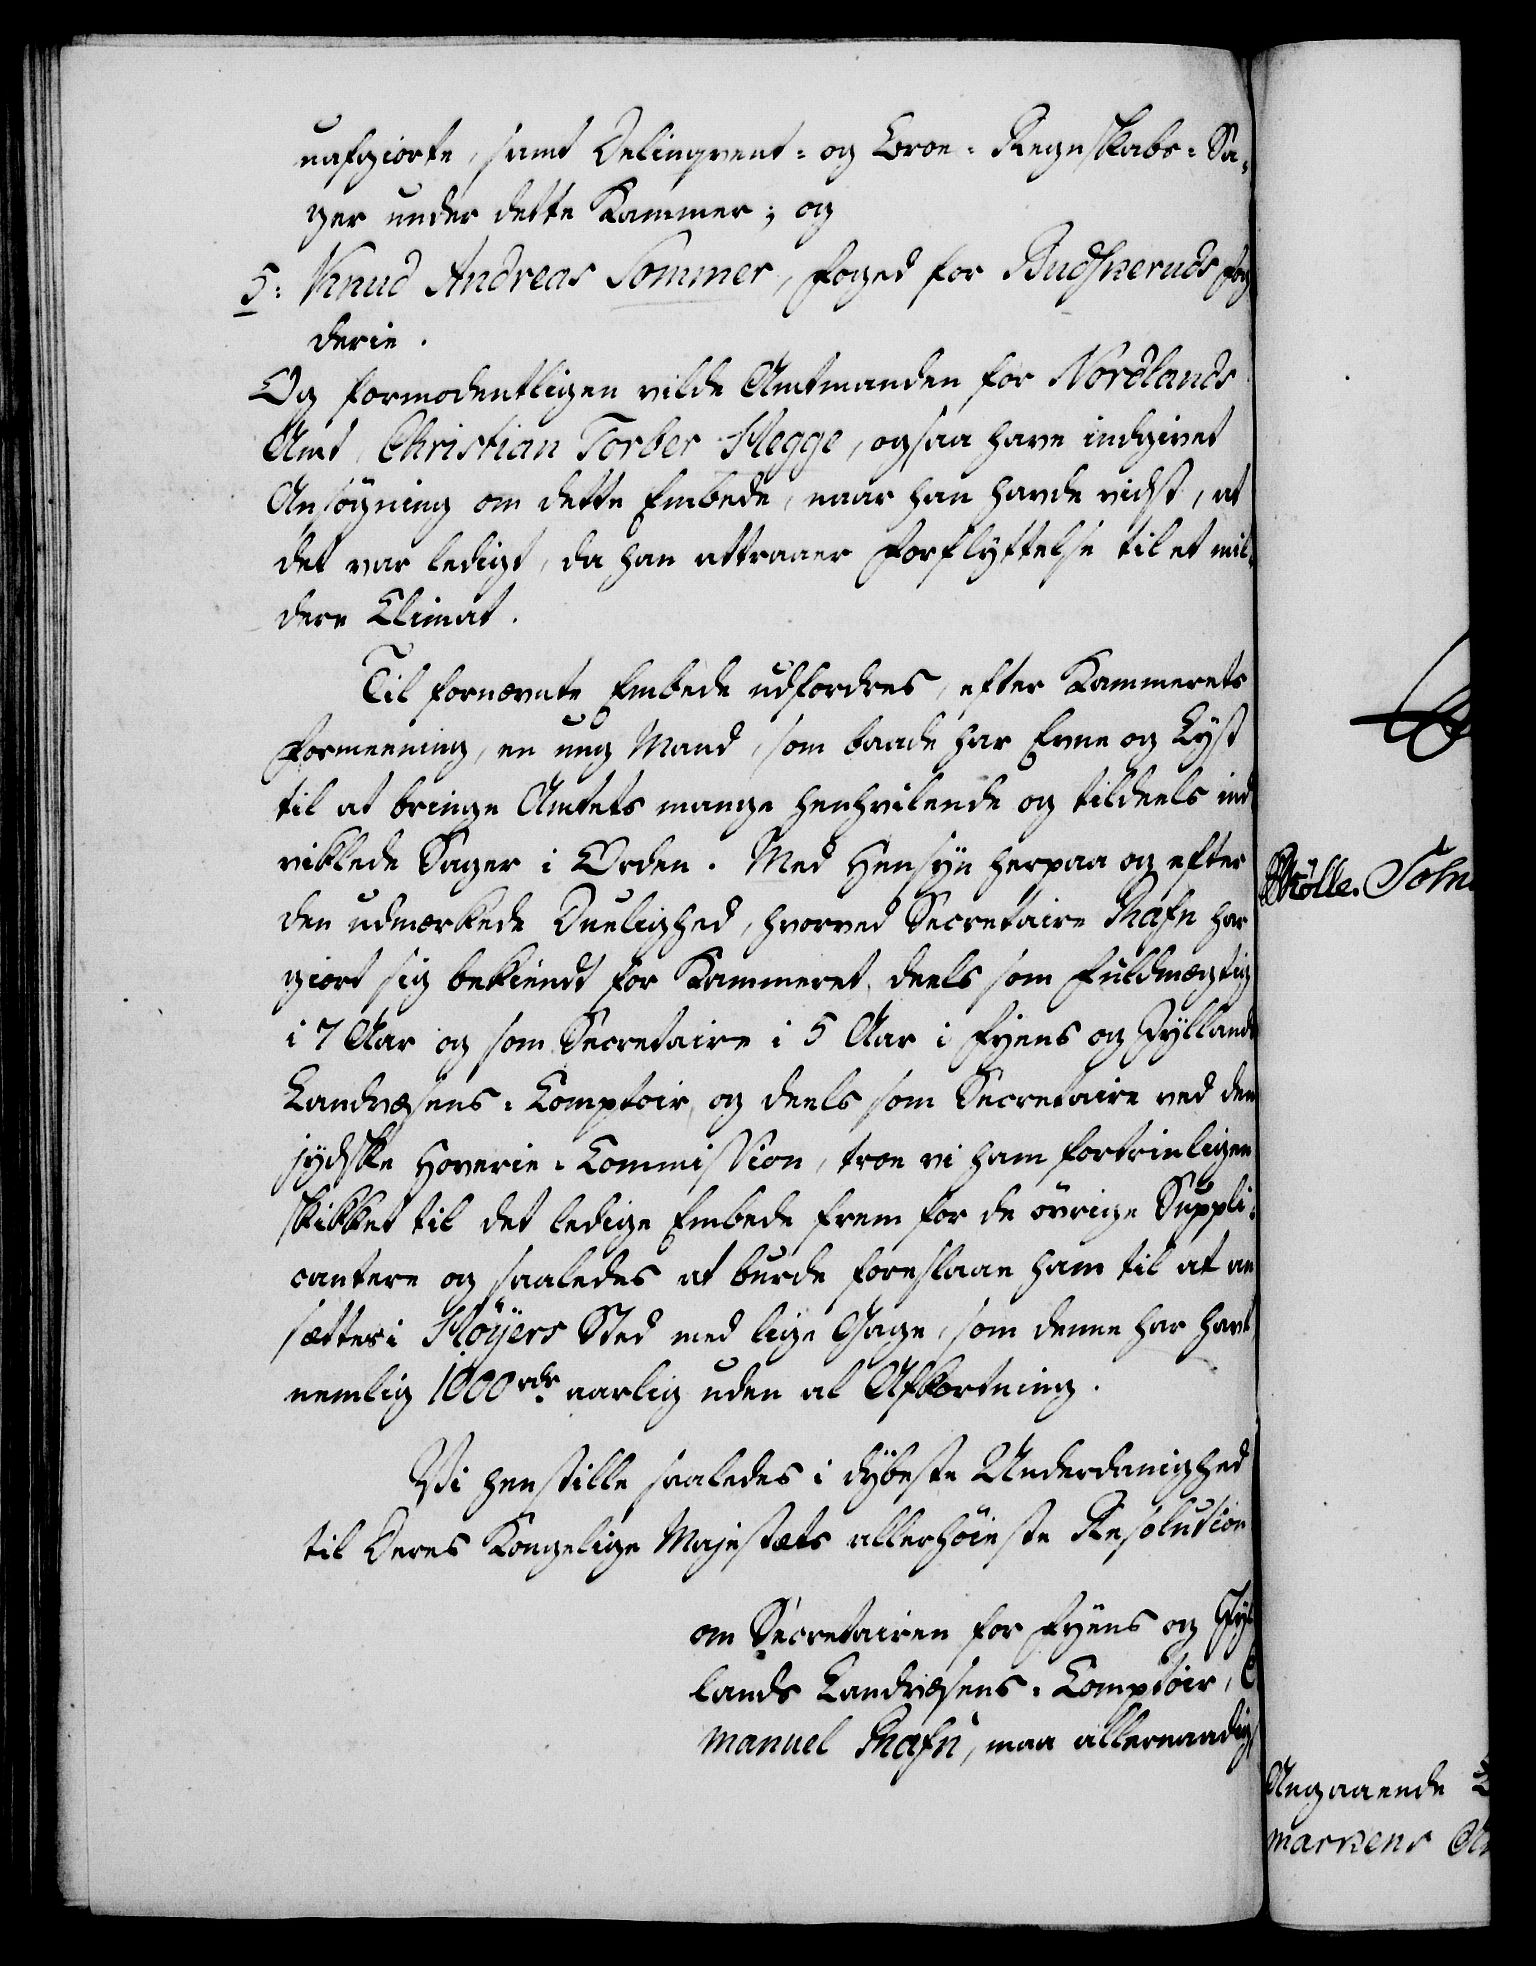 uafgiorte, samt Delinqvent- og Broe-Regnskabs-Sa-
ger under dette Kammer; og
5: Knud Andreas Sommer, Foged for Budskeruds Fog
derie.
Og formodentligen vilde Amtmanden for Nordlands
Amt, Christian Torber Hegge, ogsaa have indgivet
Ansøgning om dette Embede, naar han havde vidst, at
det var ledigt, da han attraaer Forflyttelse til et mil-
dere Climat.
Til fornævnte Embede udfordres, efter Kammerets
Formeening, en ung Mand, som baade har Evne og Lyst
til at bringe Amtets mange henhvilende og tildeels ind
viklede Sager i Orden. Med Hensyn herpaa og efter
den udmærkede Duelighed, hvorved Secretaire Rafn har
giort sig bekiendt for Kammeret, deels som Fuldmægtig
i 7 Aar og som Secretaire i 5 Aar i Fyens og Jyllands
Landvæsens-Comptoir, og deels som Secretaire ved den
jydske Hoverie-Commission, troe vi ham fortrinligen
skikket til det ledige Embede frem for de øvrige Suppli-
cantere og saaledes at burde foreslaae ham til at an
sættes i Høyers Sted med lige Gage, som denne har havt,
nemlig 1000 rdr aarlig uden al Afkortning.
Vi henstille saaledes i dybeste Underdanighed
til Deres Kongelige Majestæts allerhøieste Resolution
om Secretairen for Fyens og Jyl
lands Landvæsens-Comptoir, E
manuel Rafn, maa allernaadigs
Mölle.
Angaaende
markens